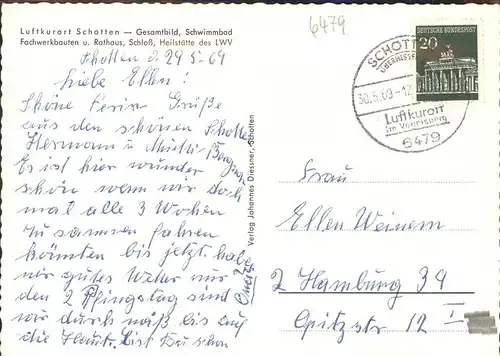 6479
Luftkurort Schotten — Gesamtbild, Schwimmbad
Fachwerkbauten u. Rathaus, Schloß, Heilstätte des LWV
Schotten d. 29 5. 69
Liebe Ellen!
Schöne Ferien Grüße
aus dem schönen Schotten
Hermann u.
Es ist hier wunder
schön wenn wir doch
mal alle 3 Wochen
zu sammen fahren
könnten bis jetzt habe
wir gutes Wetter nur
den 2 Pfingstag sind
wir durch näß bis auf
die Haut. bist Du schon
Verlag Johannes Diessner, Schotten
SCHOTTEN
30.5.69-12
Luftkurort
im Vogelsberg
6479
DEUTSCHE BUNDESPOST
20
Frau
Ellen Weinem
2 Hamburg 39
Opitzstr 12 I